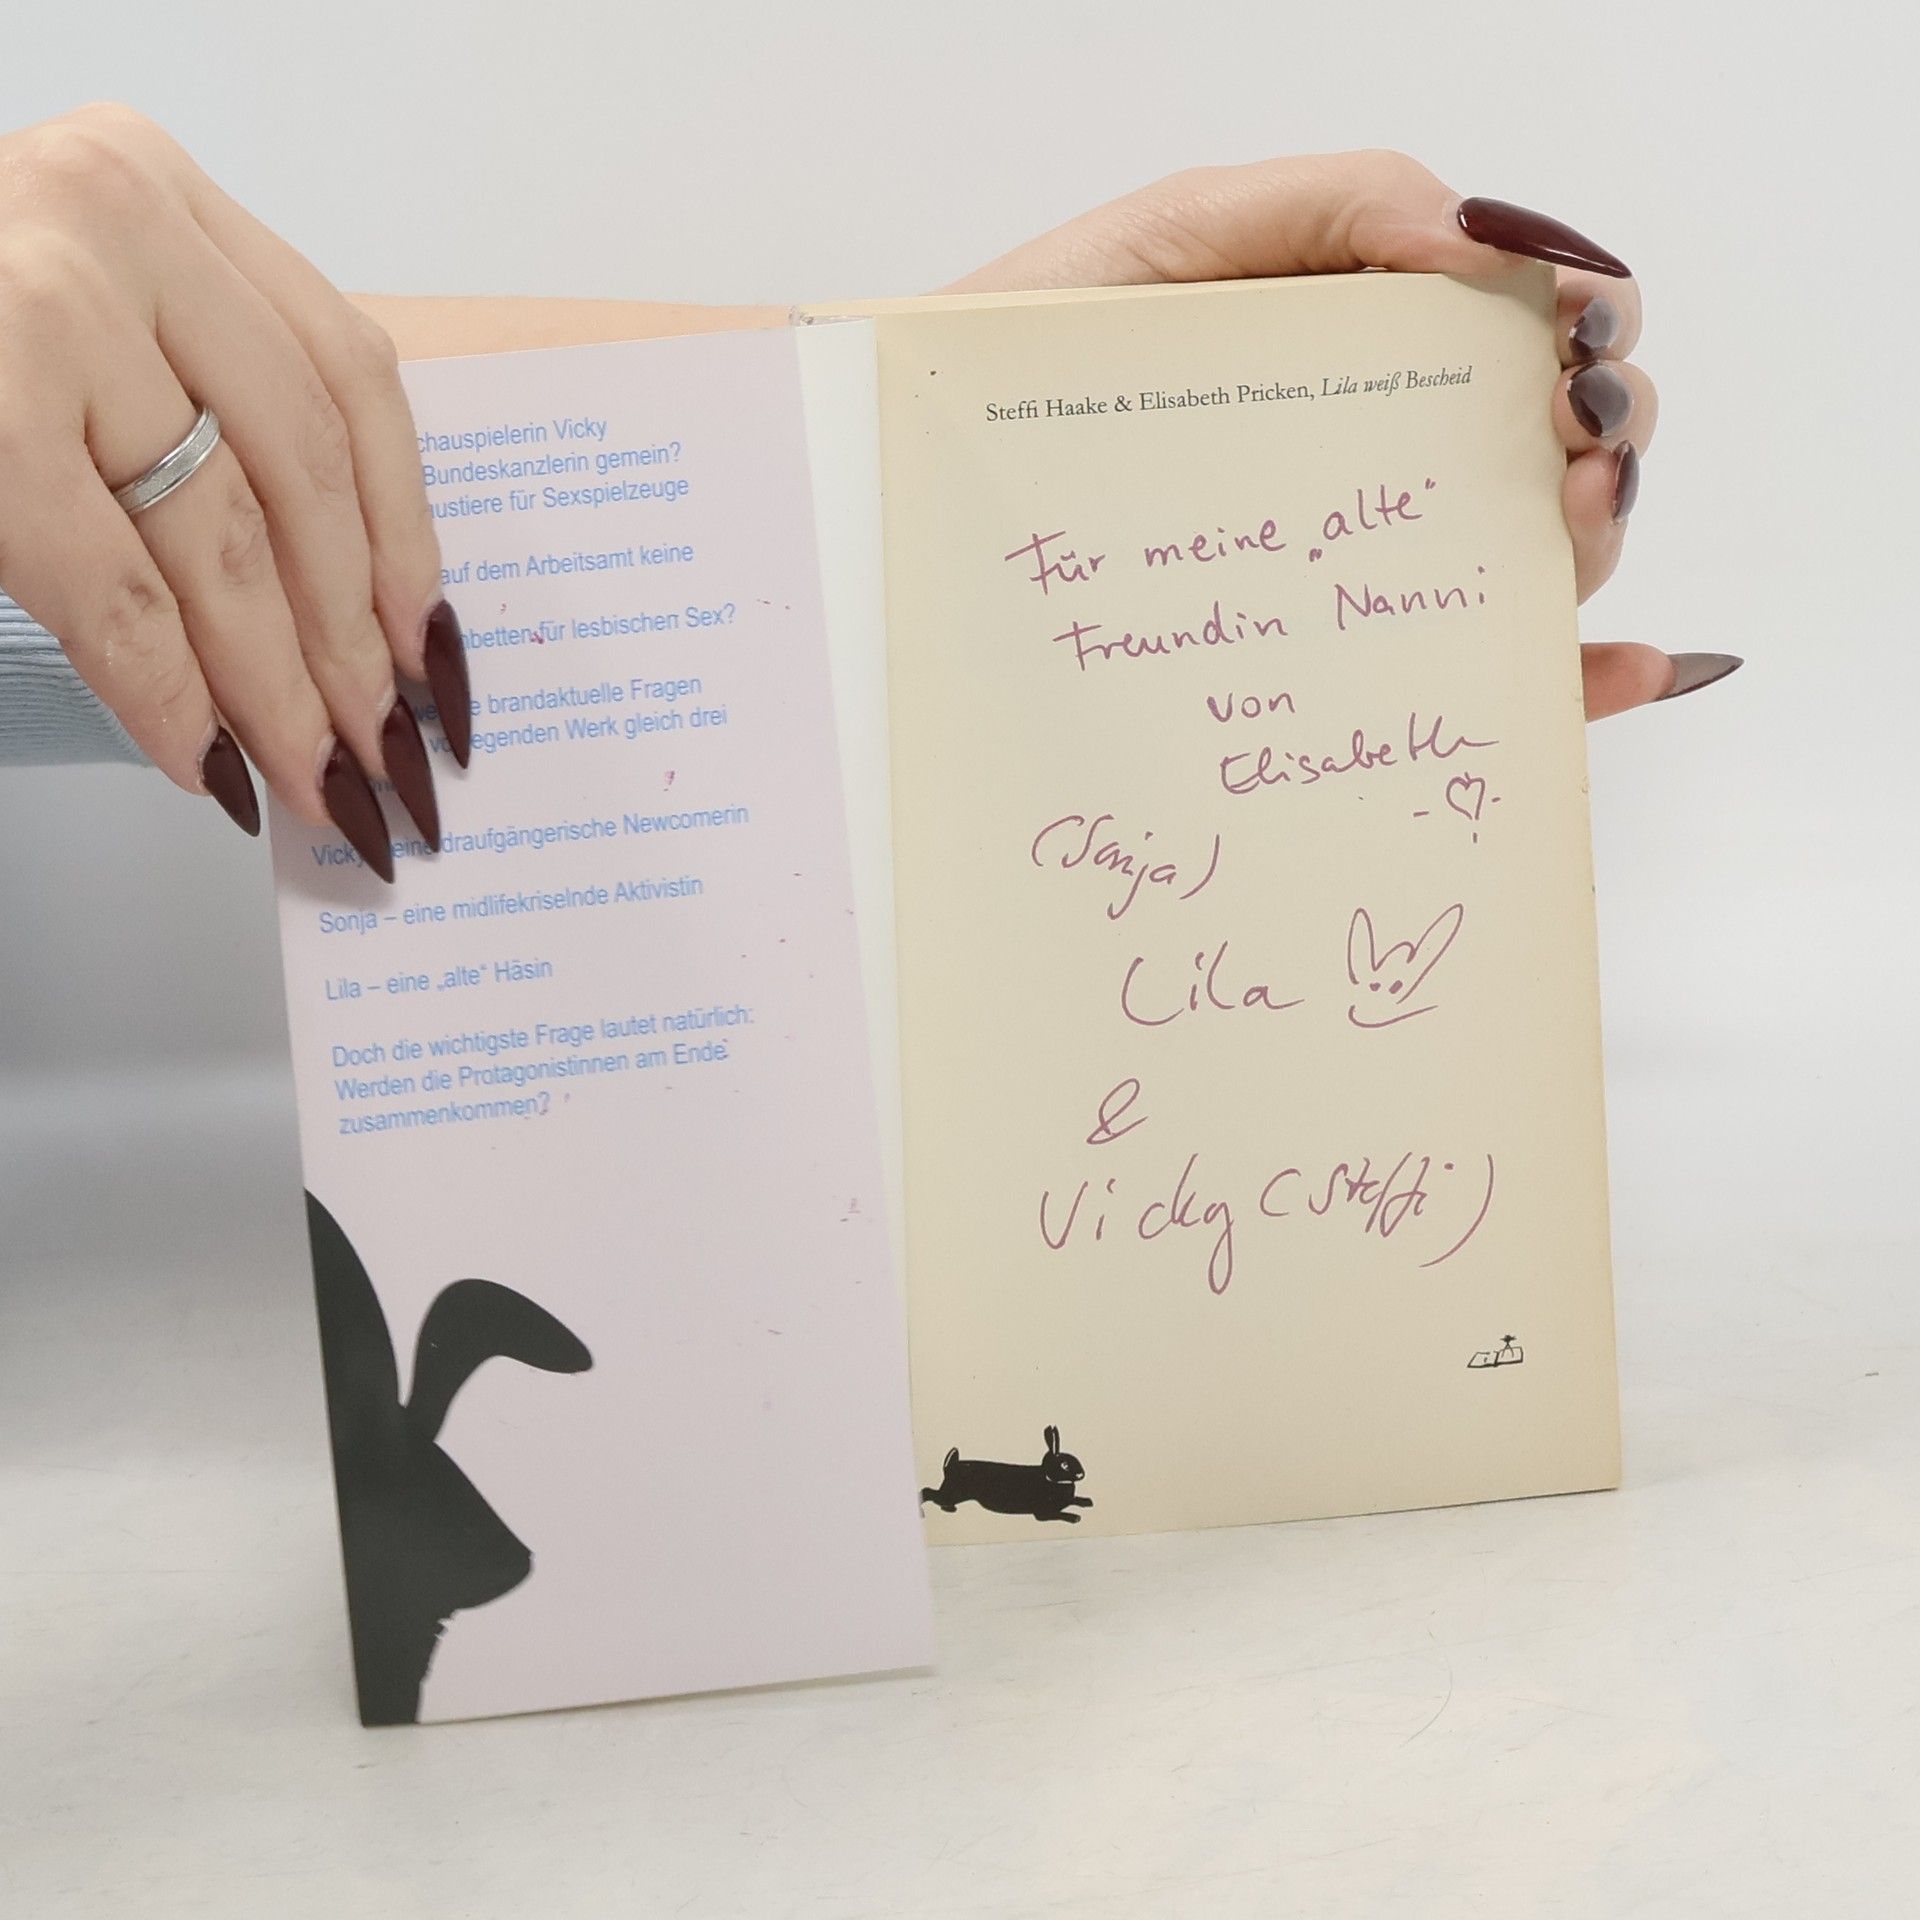 chauspielerin Vicky
Bundeskanzlerin gemein?
ustiere für Sexspielzeuge
auf dem Arbeitsamt keine
nbetten für lesbischen Sex?
brandaktuelle Fragen
egenden Werk gleich drei
Vicky eine draufgängerische Newcomerin
Sonja – eine midlifekriselnde Aktivistin
Lila – eine „alte“ Häsin
Doch die wichtigste Frage lautet natürlich:
Werden die Protagonistinnen am Ende
zusammenkommen?
Steffi Haake & Elisabeth Pricken, Lila weiß Bescheid
Für meine „alte“
Freundin Nanni
von
Elisabeth
(Sonja)
Lila
&
Vicky (Steffi)